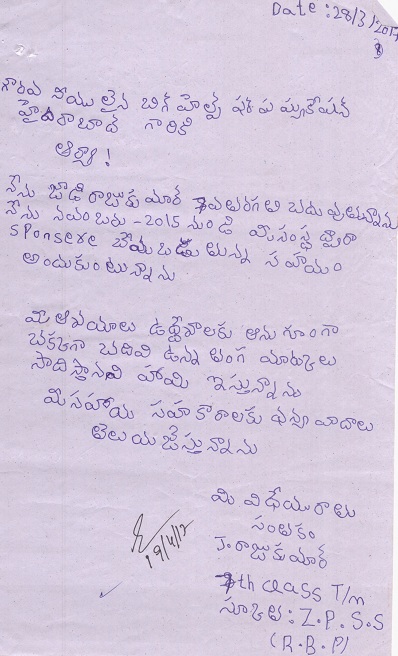 Date : 28/3/2017
గౌరవ నీయు లైన బిగ్ హెల్ప్ ఫర్
హైదరాబాద్ గారికి
ఆర్యా !
నేను జాడి రాజుకు మార్ 7వ తరగ తి చదు వుతున్నాను
నేను నవంబరు - 2015 నుండి మీసంస్థ ద్వారా
sponsere చేయ బడు తున్న సహాయం
అందుకుంటున్నాను
మీ ఆశయాలు ఉద్దేశాలకు అను గూంగా
చక్కగా చదివి ఉన్న తంగ మార్కులు
సాదిస్తానని హామి ఇస్తున్నాను
మీ సహాయ సహ కారాలకు ధన్య వాదాలు
తెలుయ జేస్తున్నాను
మీ విధేయు రాలు
సంతకం
J. రాజుకు మార్
7th class T/m
స్కూల్ : Z.P.S.S
(R.B.P)
19/4/17